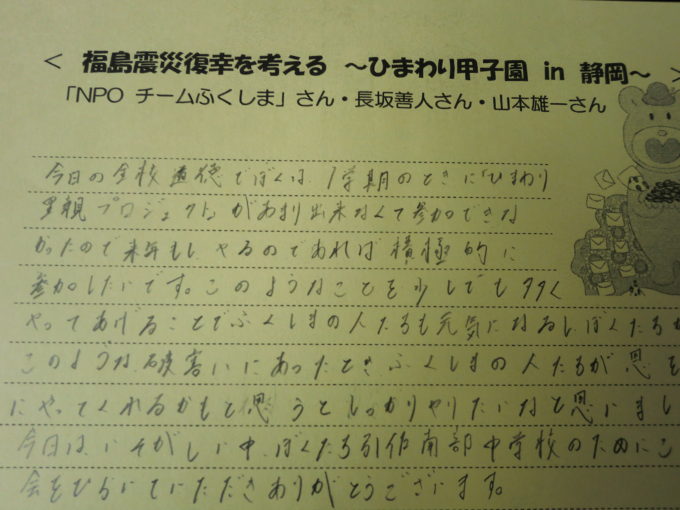 ＜ 福島震災復幸を考える ～ひまわり甲子園 in 静岡～ ＞
「NPO チームふくしま」さん・長坂善人さん・山本雄一さん
今日の全校道徳でぼくは、1学期のときに「ひまわり
里親プロジェクト」があまり出来なくて参加できな
かったので来年もし、やるのであれば積極的に
参加したいです。このようなことを少しでも多く
やってあげることでふくしまの人たちも元気になるしぼくたちが
このような 害 にあったときふくしまの人たちが恩を
にやってくれるかもと思うとしっかりやりたいなと思いまし
今日は、いそがしい中、ぼくたち引佐南部中学校のためにこ
会をひらいていただきありがとうございます。